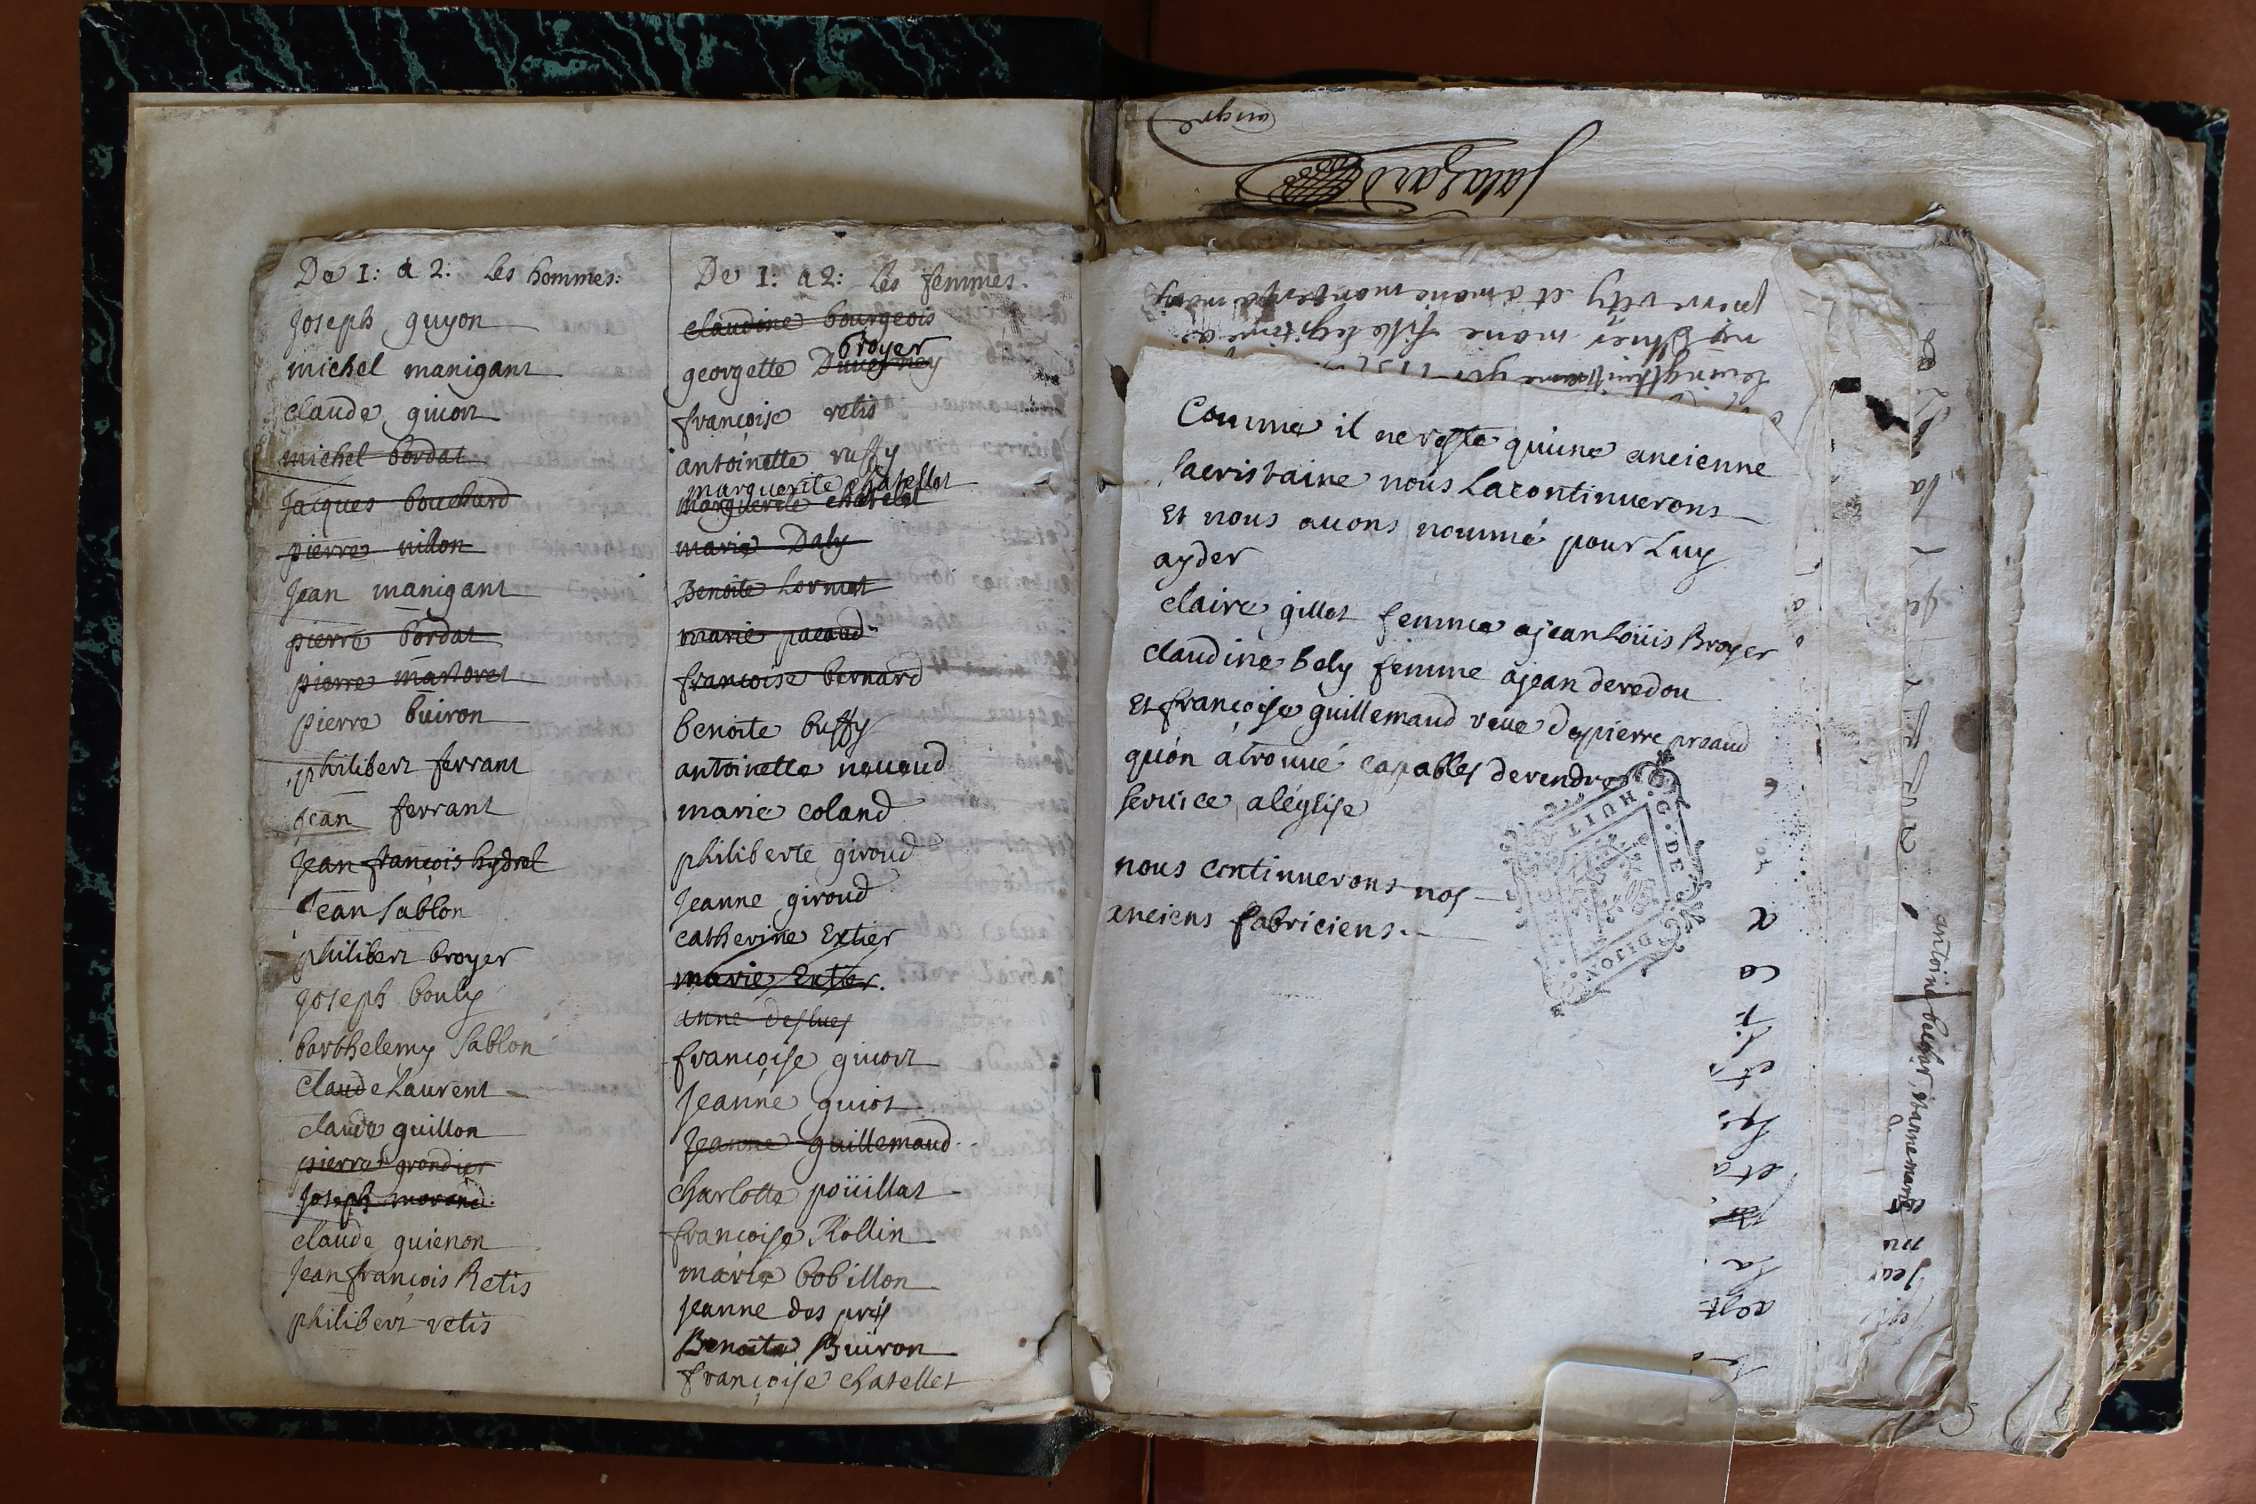 De 1: a 2: les hommes:
Joseph guyon
michel manigant
claude givort
michel bordat
Jacques bouchard
pierre nillon
Jean manigant
pierre bordat
pierre martoret
pierre buiron
philibert ferrant
Jean ferrant
Jean françois hydrel
Jean Sablon
philibert broyer
Joseph bouly
barthelemy Sablon
Claude Laurent
claude guillon
pierre grondier
Joseph morand
claude guienon
Jean françois Retis
philibert retis
De 1: a 2: les femmes.
claudine bourgeois
broyer
georgette Duverney
françoise retis
antoinette ruffy
marguerite chatellet
marguerite chatelet
marie Daly
Benoite Lornet
marie pacaud
françoise bernard
benoite buffy
antoinette novaud
marie coland
philiberte giroud
Jeanne giroud
catherine Extier
marie Extier.
anne deslues
françoise givort
Jeanne guiot
Jeanne guillemaud
charlotte poüillat
françoise Rollin
marie bobillon
jeanne des prés
Benoite Buiron
françoise chatellet
Salazard
pierre vitry et a marie
marie fille legitime a
Comme il ne reste qu'une ancienne
sacristaine nous La continuerons
Et nous avons nommé pour Luy
ayder
claire gillot femme a jean Loüis Broyer
claudine bely femme a jean deredou
Et françoise guillemaud veue de pierre preaud
qu'on a trouvé capables de rendre
service a l'église
nous continuerons nos
anciens fabriciens.
G. DE
HUIT
DIJON
antoine bechar, et anne marie